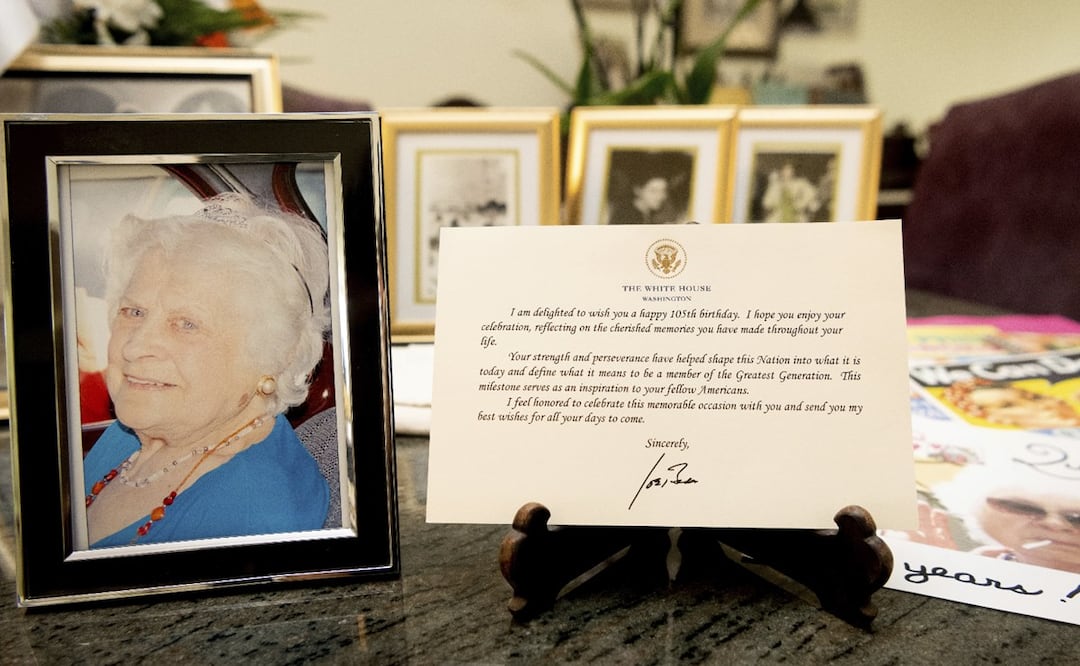 THE WHITE HOUSE
WASHINGTON
I am delighted to wish you a happy 105th birthday. I hope you enjoy your
celebration, reflecting on the cherished memories you have made throughout your
life.
Your strength and perseverance have helped shape this Nation into what it is
today and define what it means to be a member of the Greatest Generation. This
milestone serves as an inspiration to your fellow Americans.
I feel honored to celebrate this memorable occasion with you and send you my
best wishes for all your days to come.
Sincerely,
Joe Biden
We Can D
years !